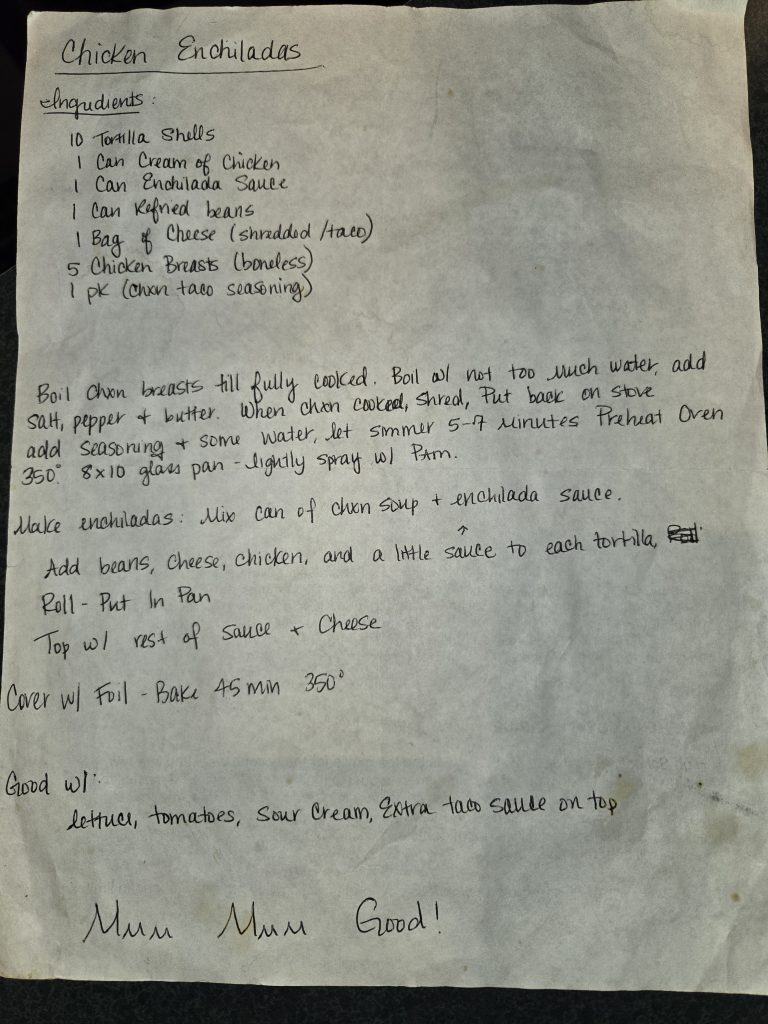 Chicken Enchiladas
Ingredients:
10 Tortilla Shells
1 Can Cream of Chicken
1 Can Enchilada Sauce
1 Can Refried beans
1 Bag of Cheese (shredded/taco)
5 Chicken Breasts (boneless)
1 pk (chxn taco seasoning)
Boil chxn breasts till fully cooked. Boil w/ not too much water, add
salt, pepper + butter. When chxn cooked, shred, Put back on stove
add seasoning + some water, let simmer 5-7 minutes Preheat Oven
350°. 8x10 glass pan - lightly spray w/ Pam.
Make enchiladas: Mix can of chxn soup + enchilada sauce.
↑
Add beans, cheese, chicken, and a little sauce to each tortilla,
Roll - Put In Pan
Top w/ rest of sauce + Cheese
Cover w/ Foil - Bake 45 min 350°
Good w/:
lettuce, tomatoes, sour cream, Extra taco sauce on top
Mmm Mmm Good!